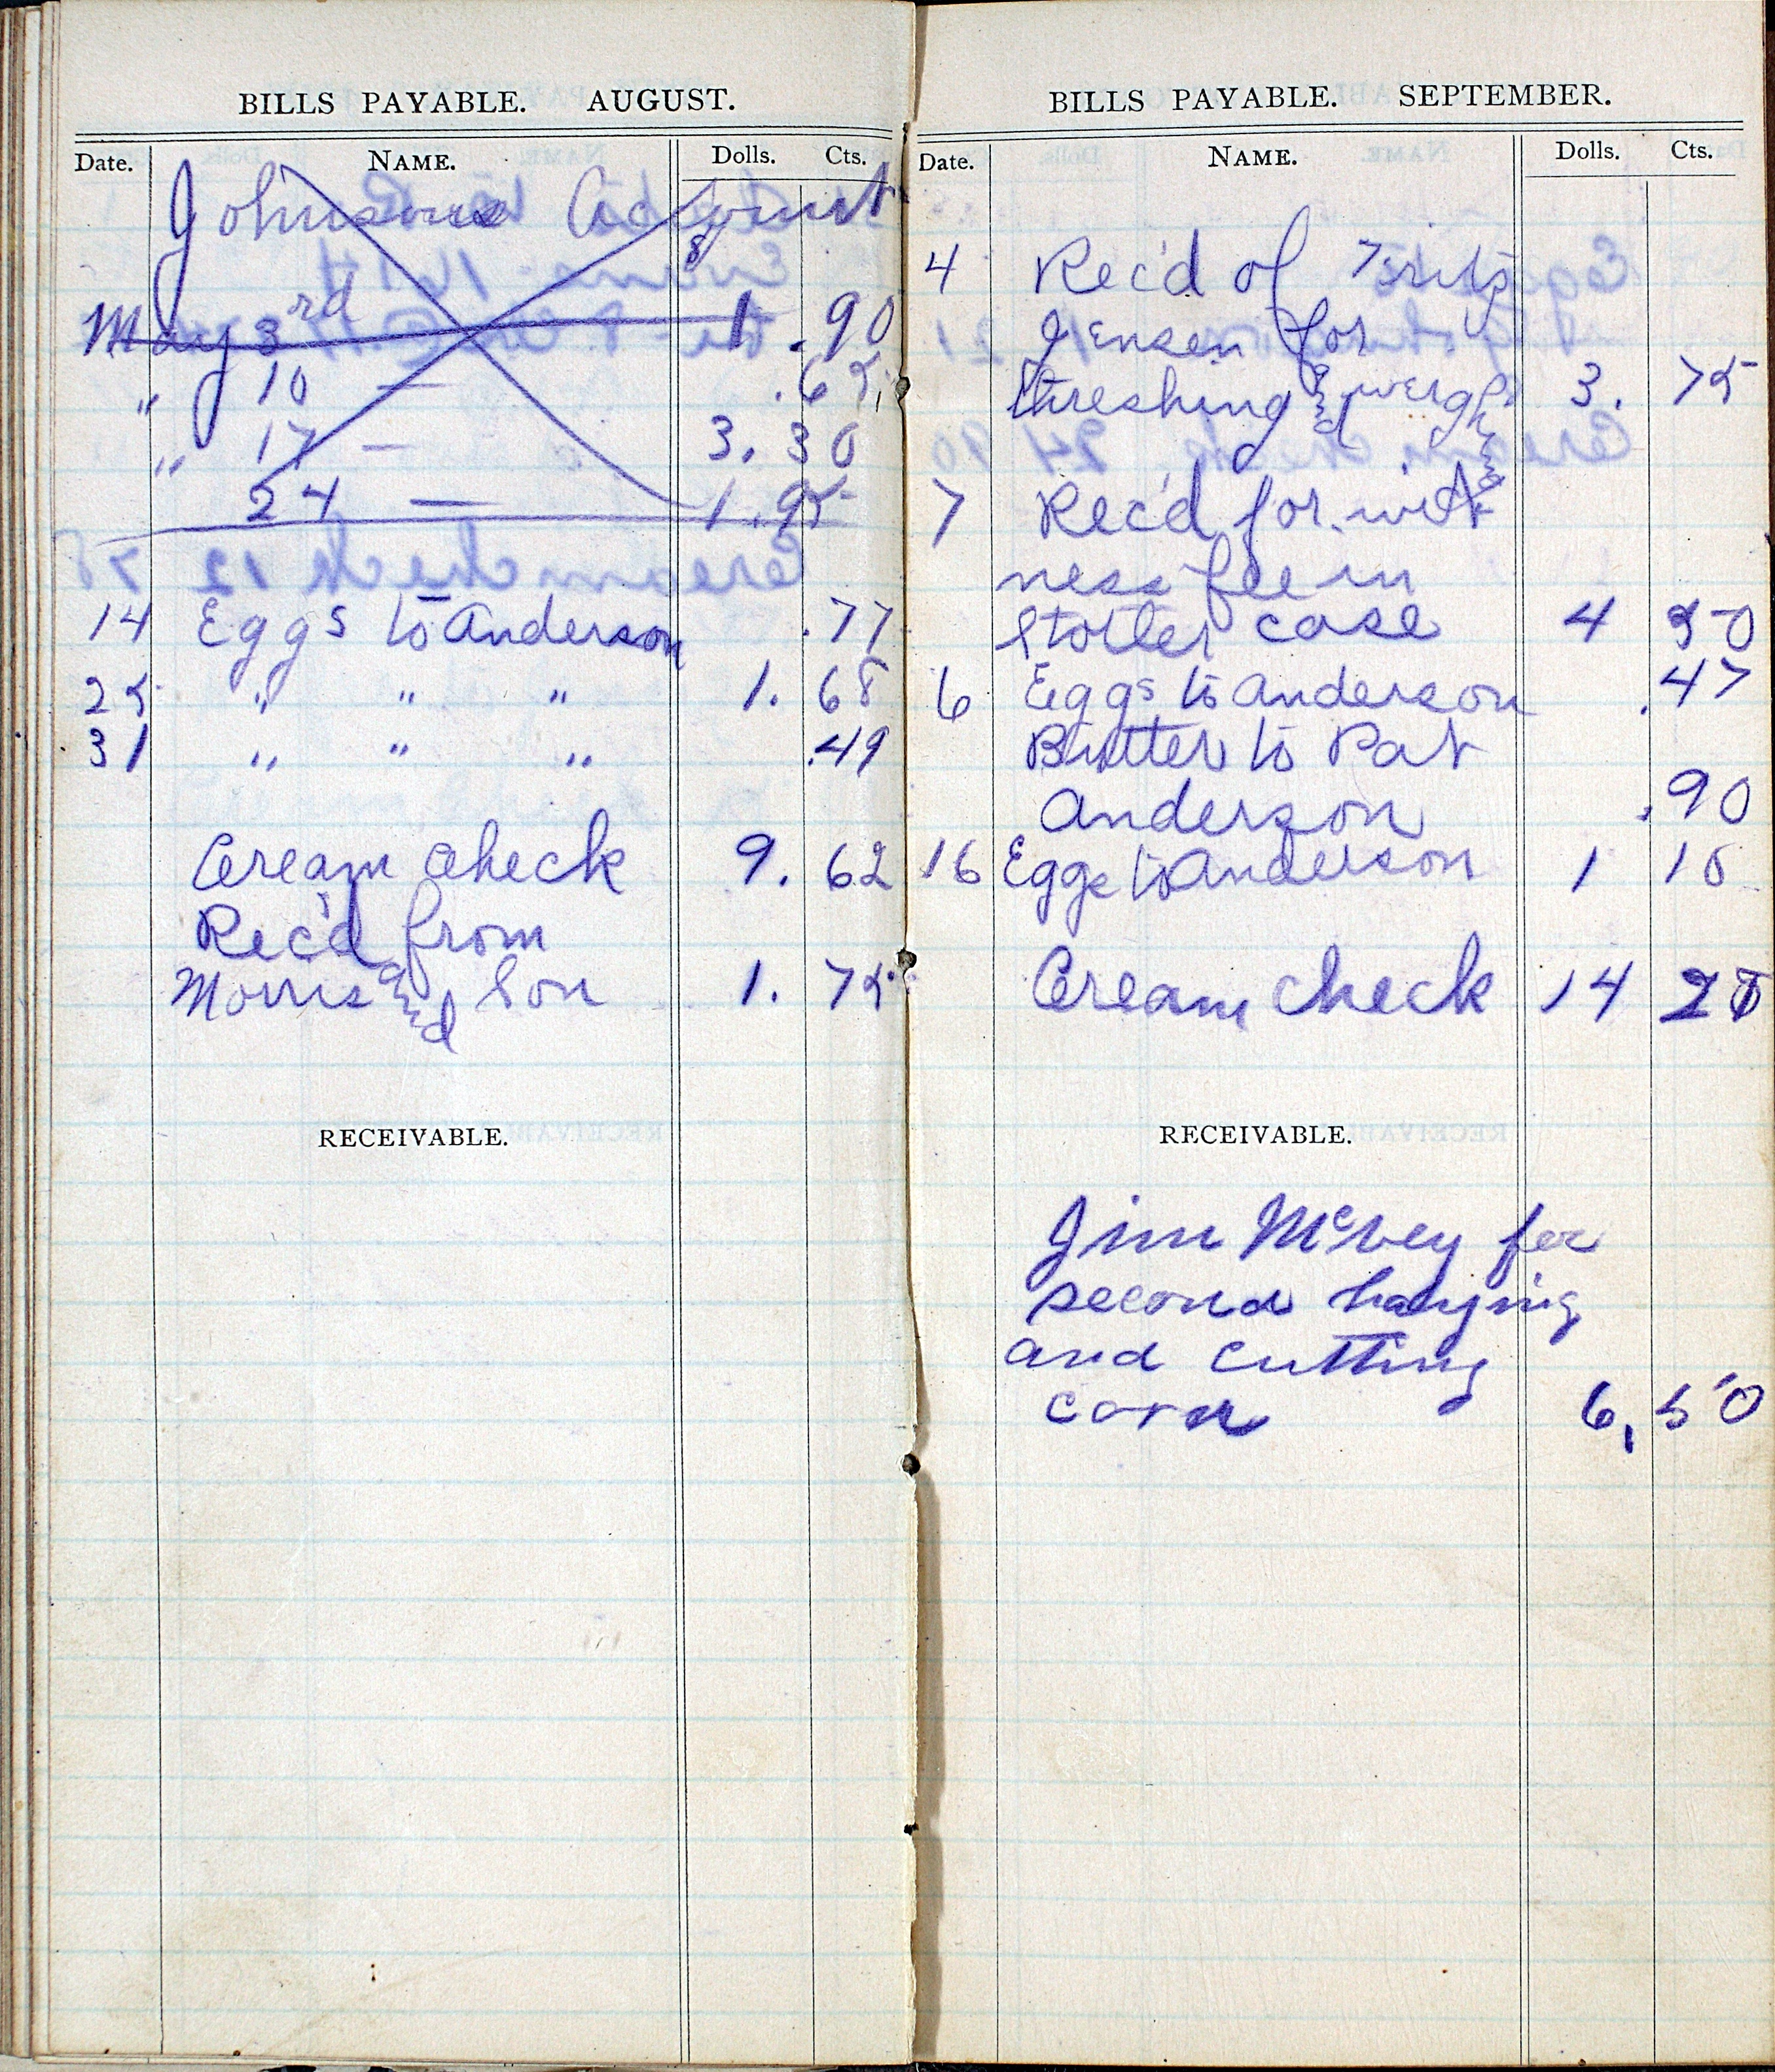 BILLS PAYABLE. AUGUST.
Date. NAME. Dolls. Cts.
Johnsons Account
May 3rd 1.90
" 10 — .65
" 17 — 3.30
24 — 1.95
14 Eggs to Anderson .77
25 " " " 1.68
31 " " " .49
Cream check 9.62
Rec'd from
Morris and Son 1.75
RECEIVABLE.
BILLS PAYABLE. SEPTEMBER.
Date. NAME. Dolls. Cts.
4 Rec'd of Frits
Jensen for
threshing and weighing 3. 75
7 Rec'd for wit
ness fee in
Stotler case 4 50
6 Eggs to Anderson .47
Butter to Pat
Anderson .90
16 Eggs to Anderson 1
Cream check 14
RECEIVABLE.
Jim McVey for
second haying
and cutting
corn 6,50